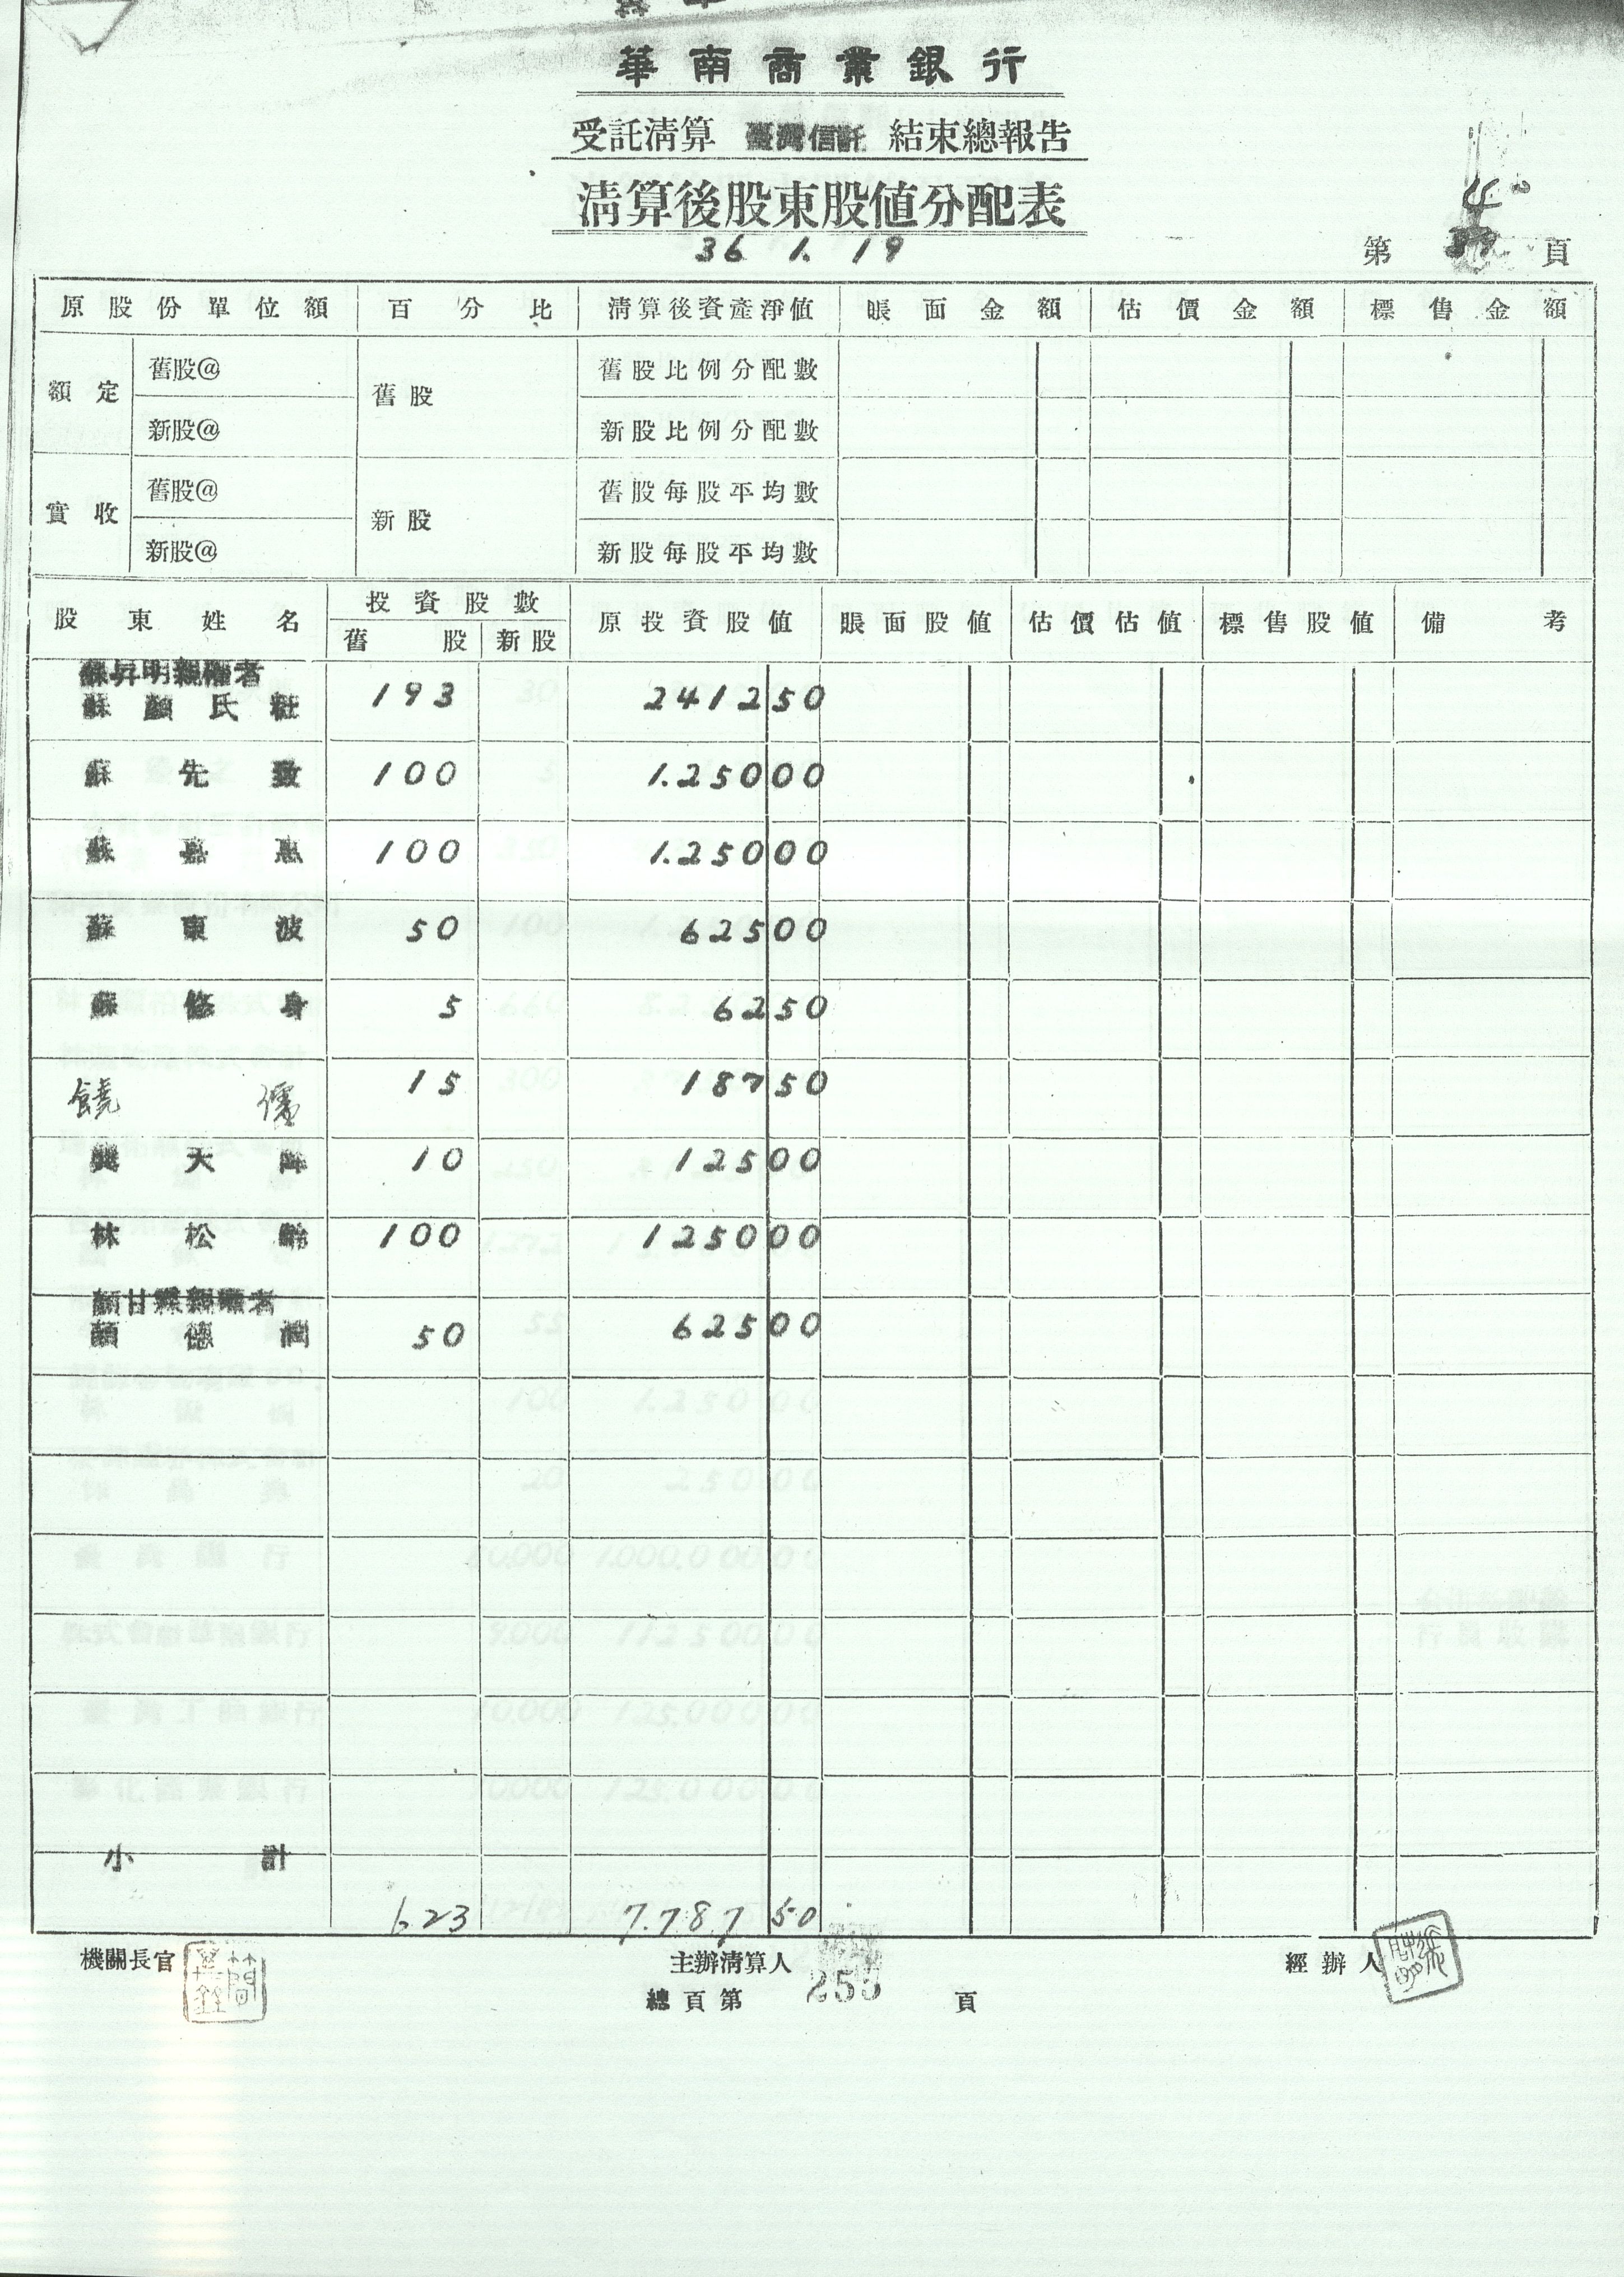 華南商業銀行
受託清算 臺灣信託 結束總報告
清算後股東股值分配表
36 1. 19
第 頁
原股份單位額 百分比 清算後資產淨值 賬面金額 估價金額 標售金額
額定 舊股@ 舊股 舊股比例分配數
新股@ 新股比例分配數
實收 舊股@ 新股 舊股每股平均數
新股@ 新股每股平均數
股東姓名 投資股數 原投資股值 賬面股值 估價估值 標售股值 備考
舊股 新股
蘇昇明親權者
蘇顏氏 193 2412 50
蘇先致 100 1.250 00
蘇嘉惠 100 1.250 00
蘇東波 50 625 00
蘇修身 5 62 50
饒儒 15 187 50
天 10 125 00
林松 100 1250 00
顏甘霖親權者
顏德潤 50 625 00
小計
623 7.787 50
機關長官 主辦清算人 經辦人
總頁第 255 頁